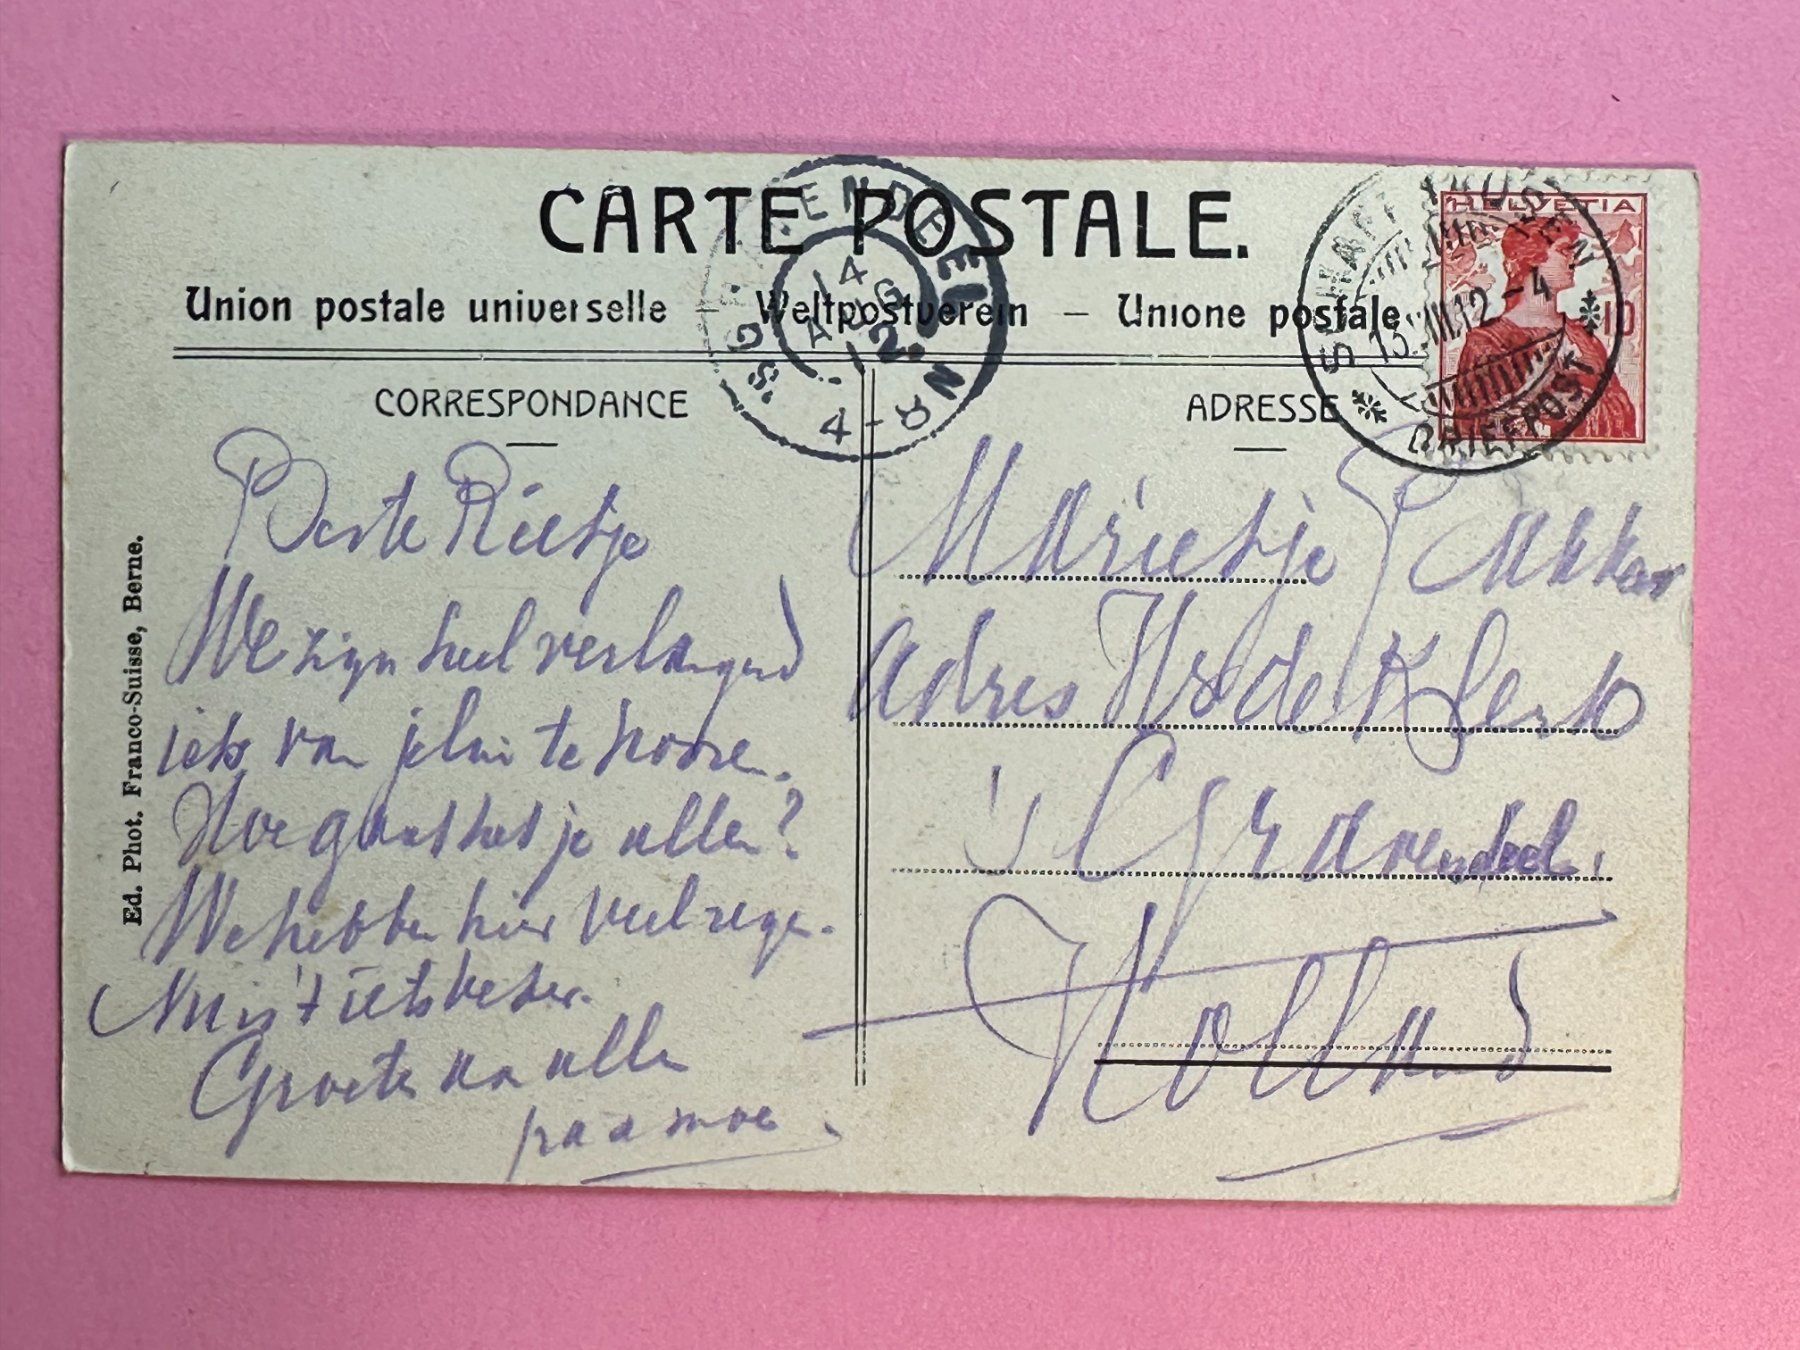 CARTE POSTALE.
Union postale universelle — Weltpostverein — Unione postale
CORRESPONDANCE
ADRESSE
HELVETIA
10
SCHAFFHAUSEN
13.VIII.12-4
BRIEFPOST
'S GRAVENDEEL
14
AUG
12
4-8 N
Ed. Phot. Franco-Suisse, Berne.
Beste Rietje
We zijn heel verlangend
iets van jelui te hooren.
Hoe gaat het je allen?
We hebben hier veel regen.
Nu is 't iets beter.
Groeten aan allen
pa a moe.
Marietje
Adres Hr de Klerk
's Gravendeel.
Holland